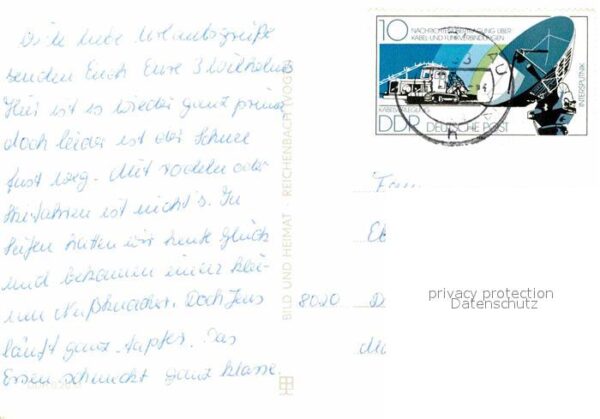 Viele liebe Urlaubsgrüße
senden Euch Eure 3 Wilhelms
Hier ist es wieder ganz prima
doch leider ist der Schnee
fast weg. Mit rodeln oder
Skifahren ist nicht's. In
Seifen hatten wir heute Glück
und bekamen einen klei-
nen Nußknacker. Doch Jens
läuft ganz tapfer. Das
Essen schmeckt ganz klasse.
BILD UND HEIMAT · REICHENBACH (VOGTL)
10 NACHRICHTENÜBERTRAGUNG ÜBER
KABEL- UND FUNKVERBINDUNGEN
INTERSPUTNIK
KABELVERLEGUNG
DDR DEUTSCHE POST
Fam
8020 D
privacy protection
Datenschutz